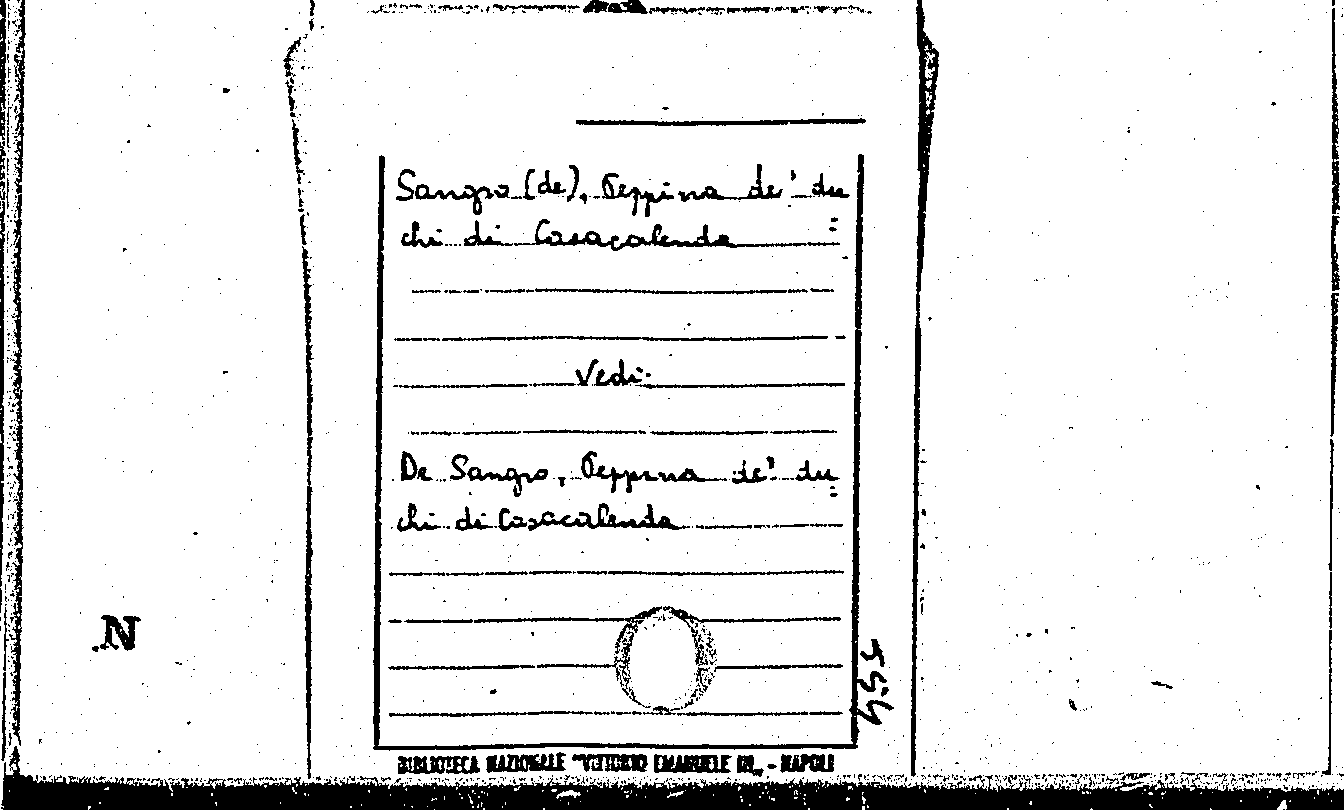 Sangro (de), Peppina de' du=
chi di Casacalenda
Vedi:
De Sangro, Peppina de' du=
chi di Casacalenda
.N
554
BIBLIOTECA NAZIONALE "VITTORIO EMANUELE III„ - NAPOLI